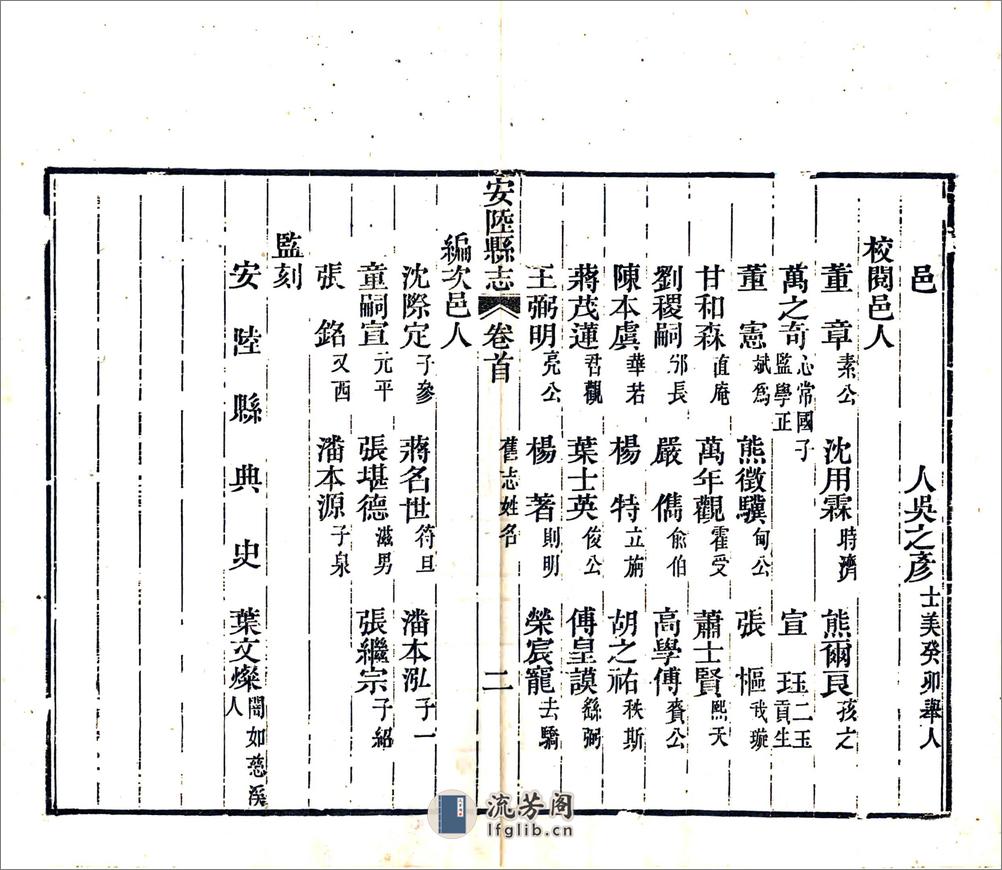 邑　人吳之彥士美癸卯舉人
校閱邑人
董　章素公　沈用霖時濟　熊爾良孩之
萬之奇心常國子監學正　宣　玨二玉貢生
董　憲斌爲　熊徵驥甸公　張　樞我璇
甘和森直庵　萬年觀霍受　蕭士賢熙天
劉稷嗣邠長　嚴　儁俞伯　高學傅賚公
陳本虞華若　楊　特立旃　胡之祐秩斯
蔣茂蓮君觀　葉士英俊公　傅皇謨繇弼
王弼明亮公　楊　著則明　榮宸寵去驕
安陸縣志　卷首　舊志姓名　二
編次邑人
沈際定子參　蔣名世符旦　潘本泓子一
童嗣宣元平　張堪德滋男　張繼宗子紹
張　銘又西　潘本源子泉
監刻
安陸縣典史葉文燦誾如慈溪人
流芳阁
lfglib.cn